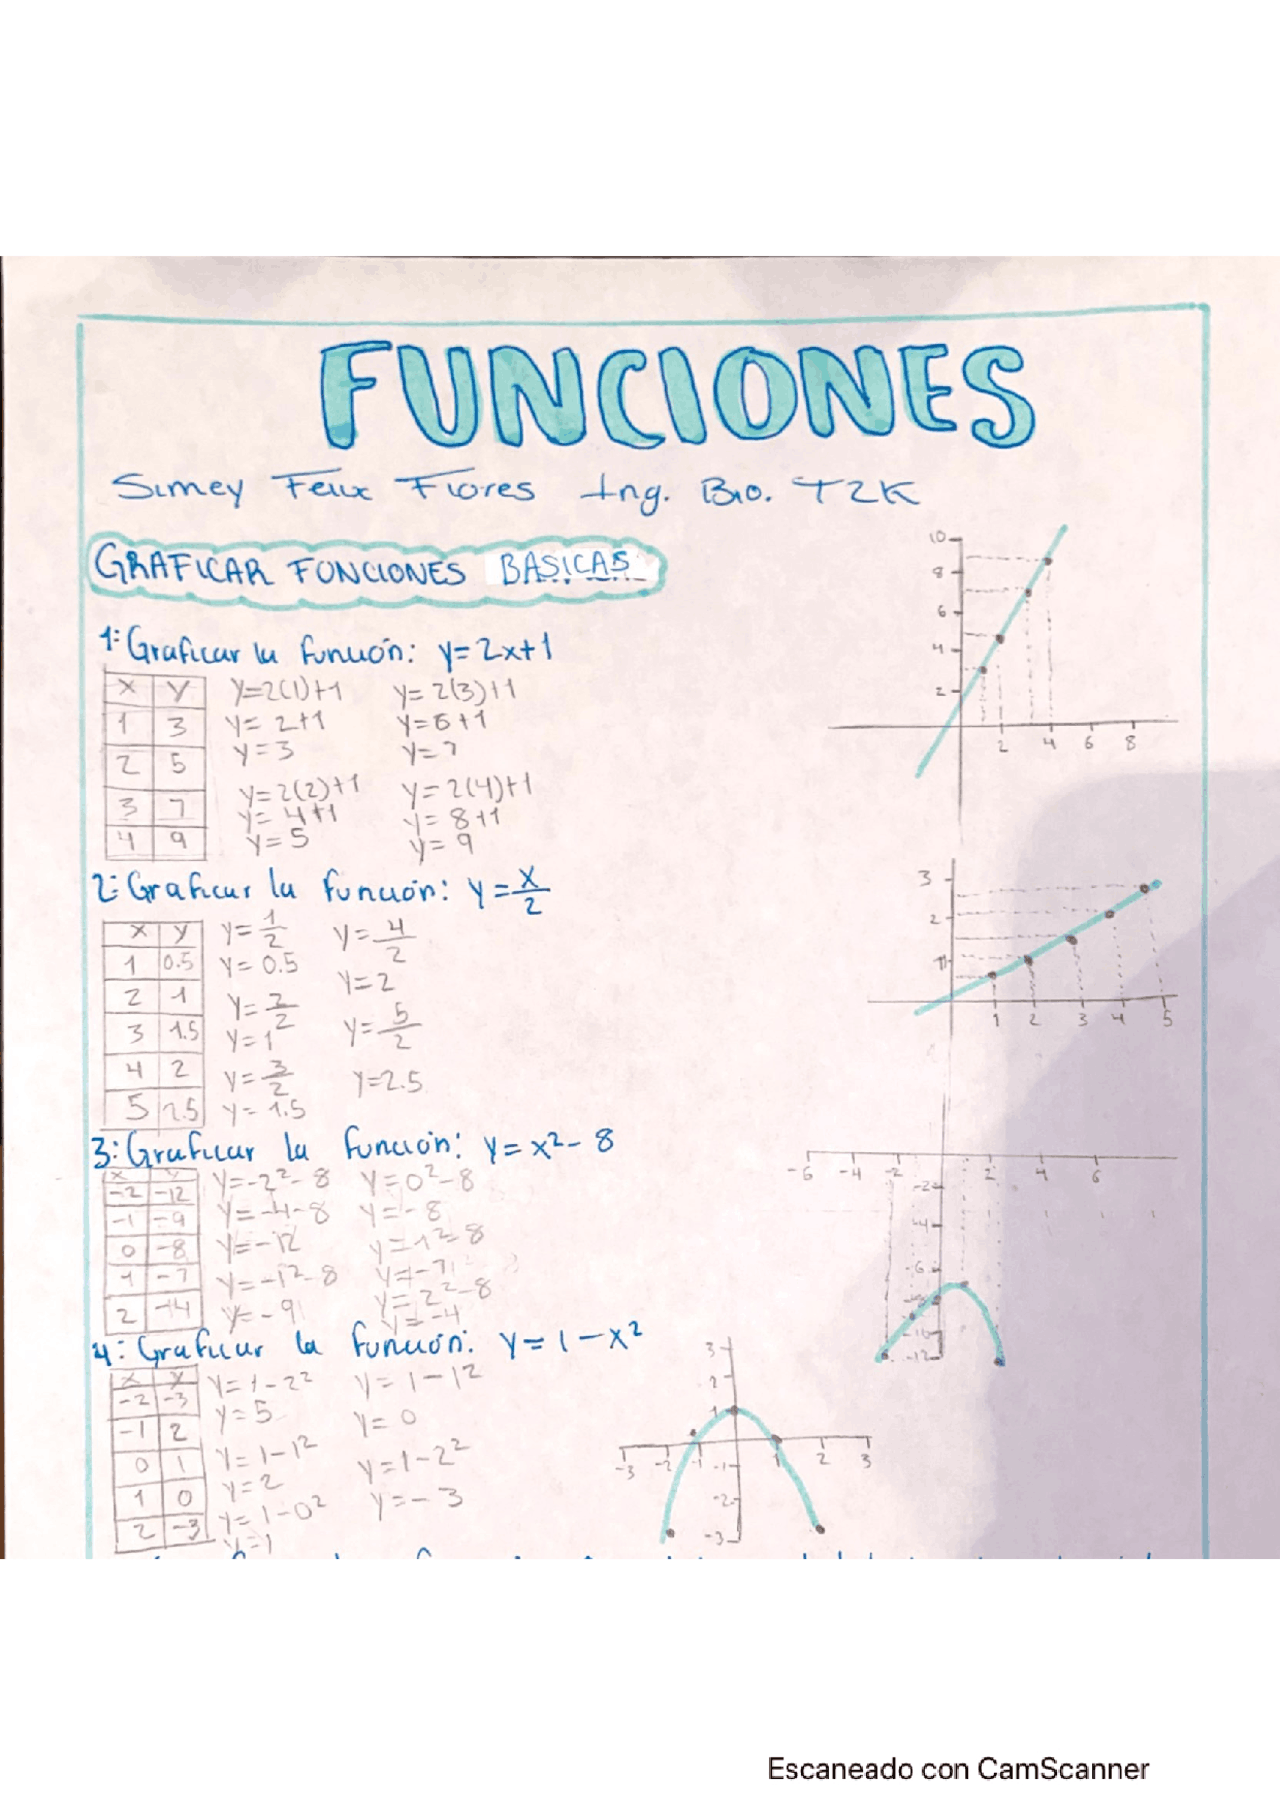 FUNCIONES
Simey Felix Flores Ing. Bio. T2K
GRAFICAR FUNCIONES BASICAS
1: Graficar la función: y=2x+1
x y
1 3
2 5
3 7
4 9
y=2(1)+1
y=2+1
y=3
y=2(2)+1
y=4+1
y=5
y=2(3)+1
y=6+1
y=7
y=2(4)+1
y=8+1
y=9
10
8
6
4
2
2 4 6 8
2: Graficar la función: y=x/2
x y
1 0.5
2 1
3 1.5
4 2
5 2.5
y=1/2
y=0.5
y=2/2
y=1
y=3/2
y=1.5
y=4/2
y=2
y=5/2
y=2.5
3
2
1
1 2 3 4 5
3: Graficar la función: y=x²-8
x y
-2 -12
-1 -9
0 -8
1 -7
2 -14
y=-2²-8
y=-4-8
y=-12
y=-1²-8
y=-9
y=0²-8
y=-8
y=1²-8
y=-7
y=2²-8
y=-4
-6 -4 -2 2 4 6
-2
-4
-6
-10
-12
4: Graficar la función: y=1-x²
x y
-2 -3
-1 2
0 1
1 0
2 -3
y=1-2²
y=5
y=1-1²
y=2
y=1-0²
y=1
y=1-1²
y=0
y=1-2²
y=-3
3
2
1
-3 -2 -1 1 2 3
-1
-2
-3
Escaneado con CamScanner